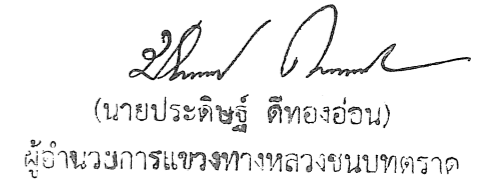 (นายประดิษฐ์ ดีทองอ่อน)
ผู้อำนวยการแขวงทางหลวงชนบทตราด